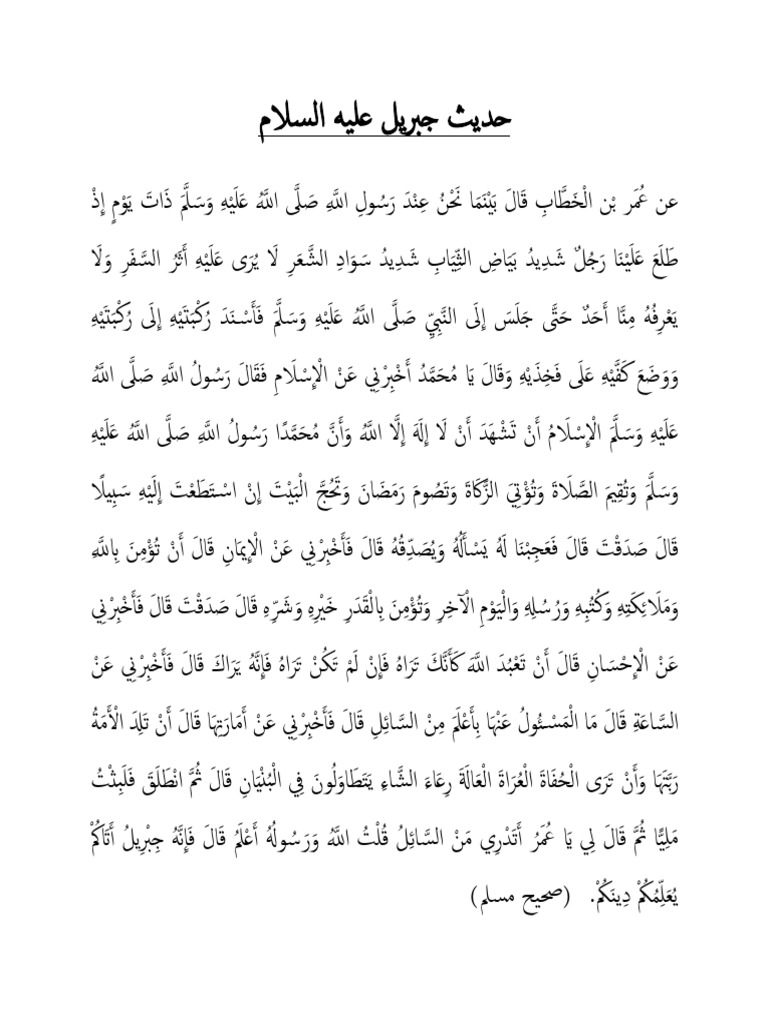 حديث جبريل عليه السلام
عن عُمَر بْن الْخَطَّابِ قَالَ بَيْنَمَا نَحْنُ عِنْدَ رَسُولِ اللَّهِ صَلَّى اللَّهُ عَلَيْهِ وَسَلَّمَ ذَاتَ يَوْمٍ إِذْ
طَلَعَ عَلَيْنَا رَجُلٌ شَدِيدُ بَيَاضِ الثِّيَابِ شَدِيدُ سَوَادِ الشَّعَرِ لَا يُرَى عَلَيْهِ أَثَرُ السَّفَرِ وَلَا
يَعْرِفُهُ مِنَّا أَحَدٌ حَتَّى جَلَسَ إِلَى النَّبِيِّ صَلَّى اللَّهُ عَلَيْهِ وَسَلَّمَ فَأَسْنَدَ رُكْبَتَيْهِ إِلَى رُكْبَتَيْهِ
وَوَضَعَ كَفَّيْهِ عَلَى فَخِذَيْهِ وَقَالَ يَا مُحَمَّدُ أَخْبِرْنِي عَنْ الْإِسْلَامِ فَقَالَ رَسُولُ اللَّهِ صَلَّى اللَّهُ
عَلَيْهِ وَسَلَّمَ الْإِسْلَامُ أَنْ تَشْهَدَ أَنْ لَا إِلَهَ إِلَّا اللَّهُ وَأَنَّ مُحَمَّدًا رَسُولُ اللَّهِ صَلَّى اللَّهُ عَلَيْهِ
وَسَلَّمَ وَتُقِيمَ الصَّلَاةَ وَتُؤْتِيَ الزَّكَاةَ وَتَصُومَ رَمَضَانَ وَتَحُجَّ الْبَيْتَ إِنْ اسْتَطَعْتَ إِلَيْهِ سَبِيلًا
قَالَ صَدَقْتَ قَالَ فَعَجِبْنَا لَهُ يَسْأَلُهُ وَيُصَدِّقُهُ قَالَ فَأَخْبِرْنِي عَنْ الْإِيمَانِ قَالَ أَنْ تُؤْمِنَ بِاللَّهِ
وَمَلَائِكَتِهِ وَكُتُبِهِ وَرُسُلِهِ وَالْيَوْمِ الْآخِرِ وَتُؤْمِنَ بِالْقَدَرِ خَيْرِهِ وَشَرِّهِ قَالَ صَدَقْتَ قَالَ فَأَخْبِرْنِي
عَنْ الْإِحْسَانِ قَالَ أَنْ تَعْبُدَ اللَّهَ كَأَنَّكَ تَرَاهُ فَإِنْ لَمْ تَكُنْ تَرَاهُ فَإِنَّهُ يَرَاكَ قَالَ فَأَخْبِرْنِي عَنْ
السَّاعَةِ قَالَ مَا الْمَسْئُولُ عَنْهَا بِأَعْلَمَ مِنْ السَّائِلِ قَالَ فَأَخْبِرْنِي عَنْ أَمَارَتِهَا قَالَ أَنْ تَلِدَ الْأَمَةُ
رَبَّتَهَا وَأَنْ تَرَى الْحُفَاةَ الْعُرَاةَ الْعَالَةَ رِعَاءَ الشَّاءِ يَتَطَاوَلُونَ فِي الْبُنْيَانِ قَالَ ثُمَّ انْطَلَقَ فَلَبِثْتُ
مَلِيًّا ثُمَّ قَالَ لِي يَا عُمَرُ أَتَدْرِي مَنْ السَّائِلُ قُلْتُ اللَّهُ وَرَسُولُهُ أَعْلَمُ قَالَ فَإِنَّهُ جِبْرِيلُ أَتَاكُمْ
يُعَلِّمُكُمْ دِينَكُمْ. (صحيح مسلم)